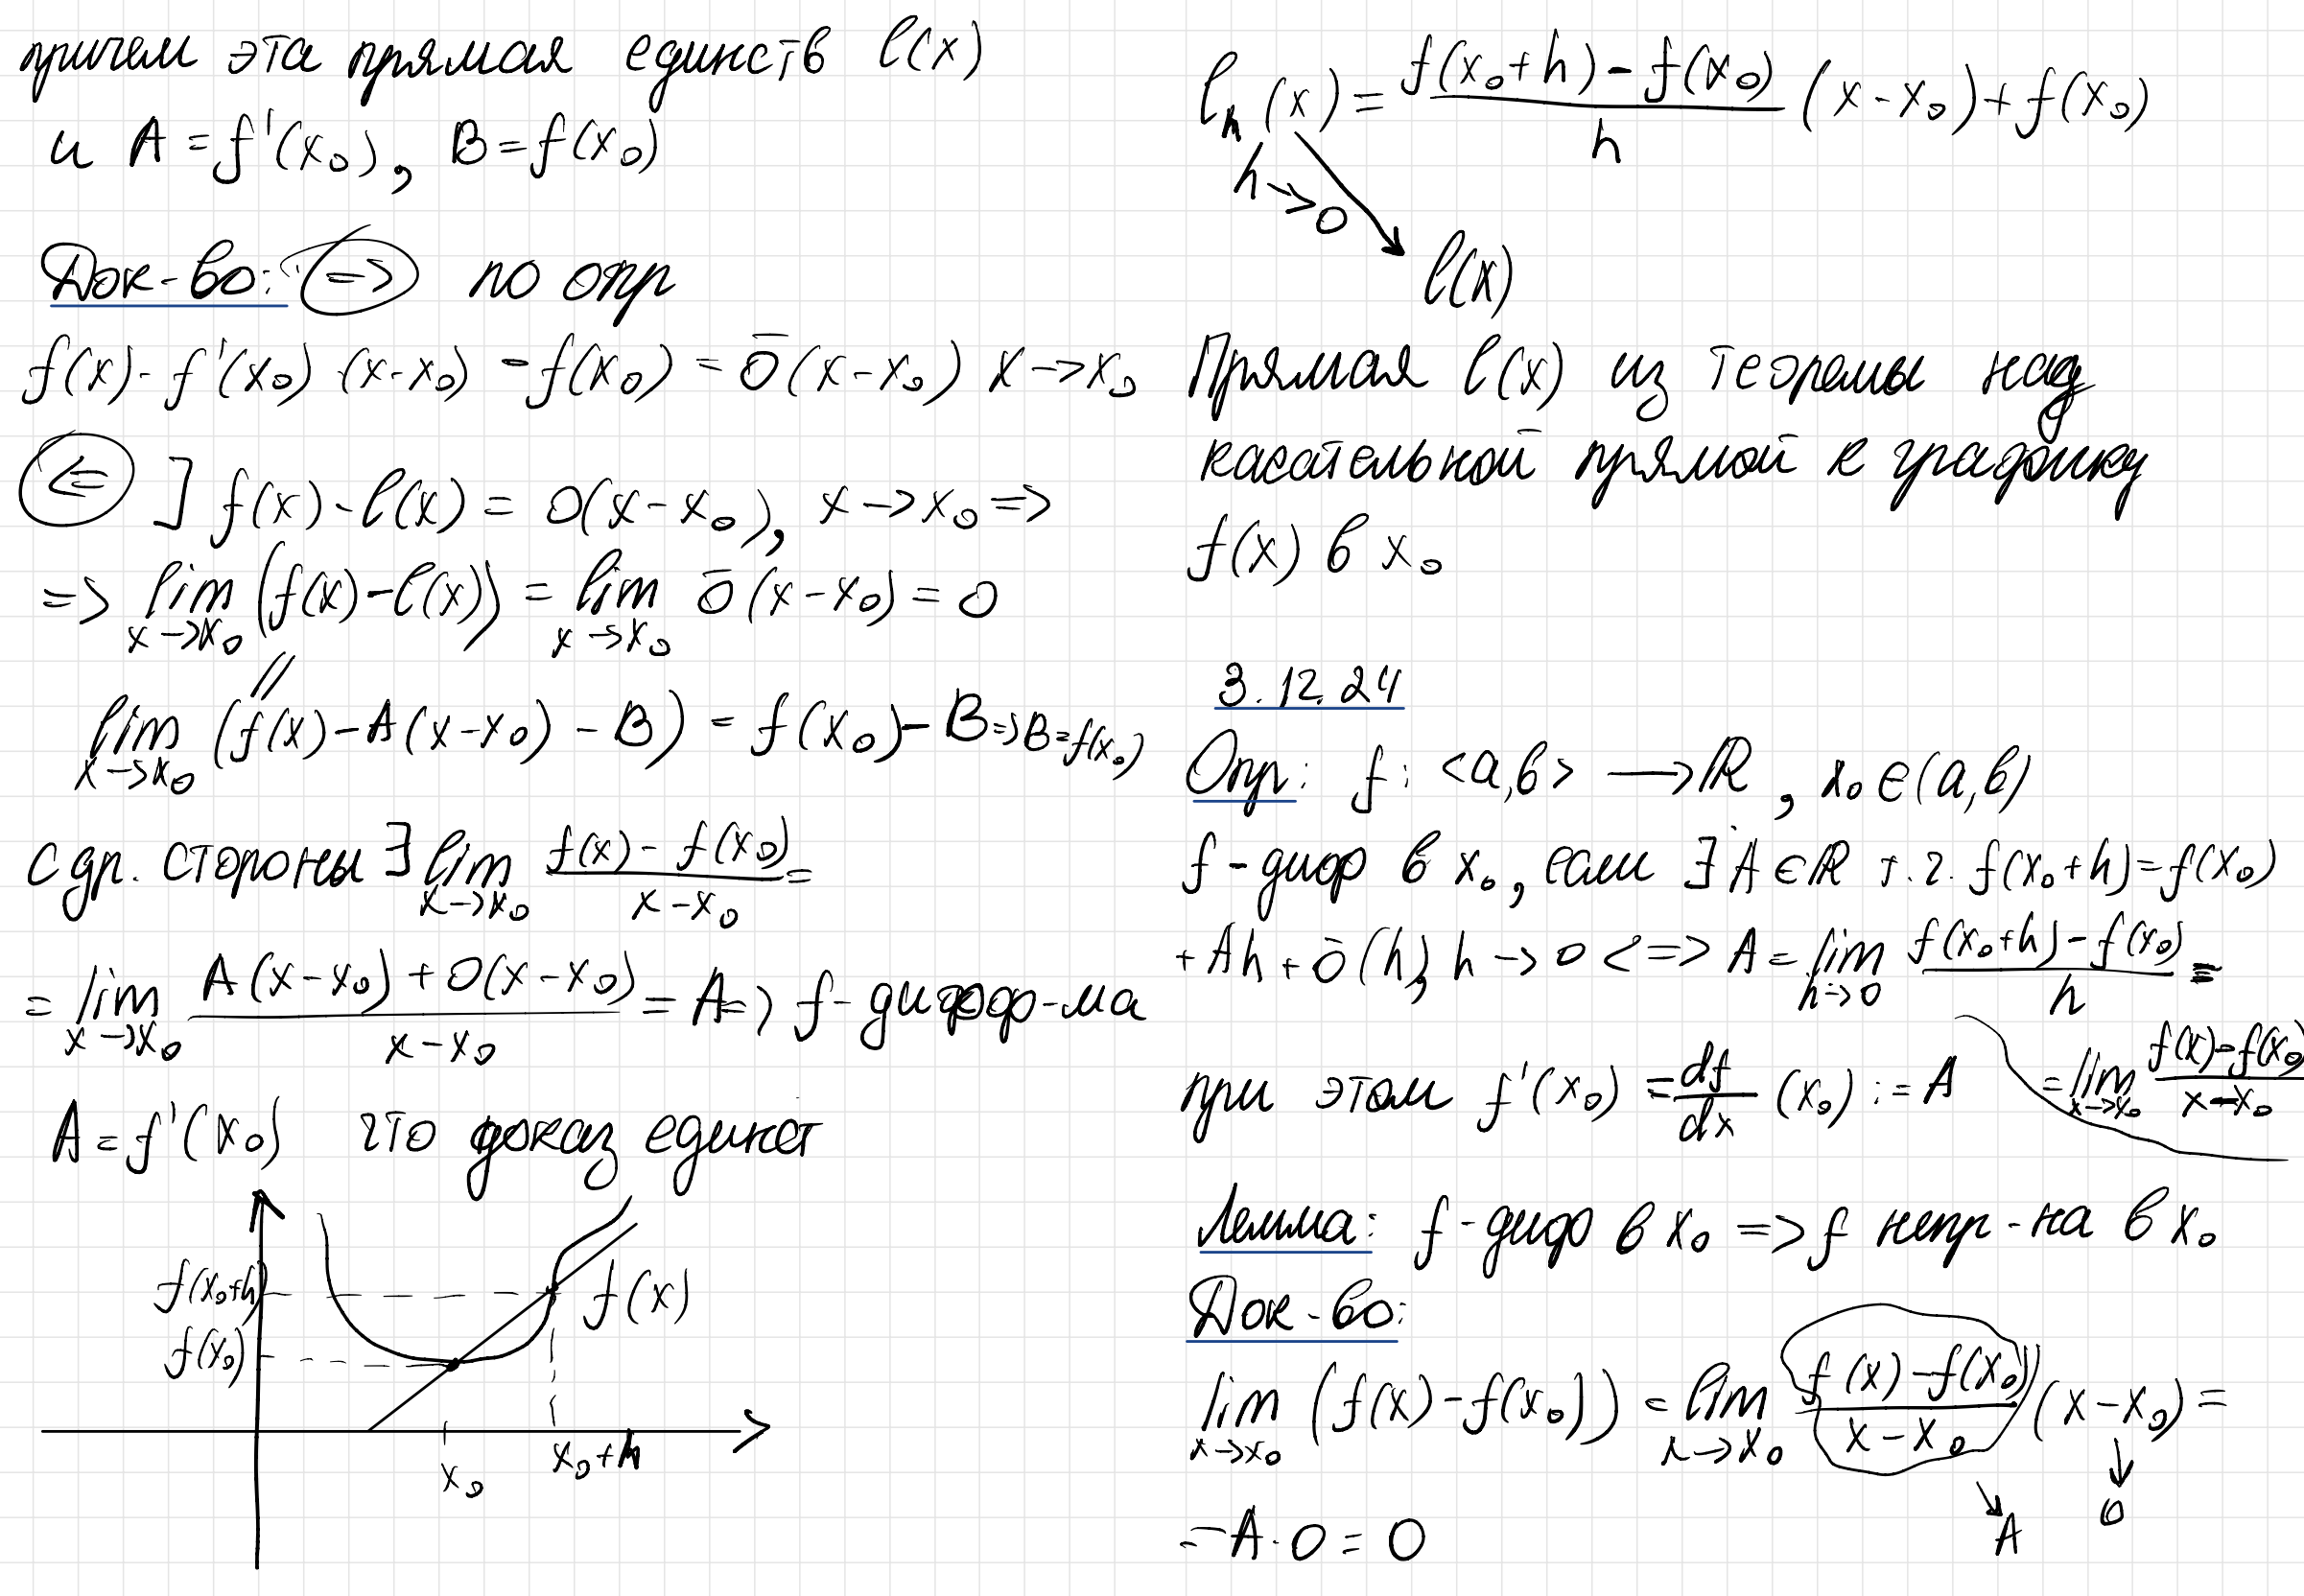 причем эта прямая единств l(x)
и A = f'(x₀), B = f(x₀)
Док-во: (=>) по опр
f(x) - f'(x₀) · (x-x₀) - f(x₀) = ō(x-x₀) x->x₀
(<=) ] f(x) - l(x) = o(x-x₀), x->x₀ =>
=> lim x->x₀ (f(x) - l(x)) = lim x->x₀ ō(x-x₀) = 0
//
lim x->x₀ (f(x) - A(x-x₀) - B) = f(x₀) - B => B=f(x₀)
с др. стороны ∃ lim x->x₀ (f(x) - f(x₀))/(x-x₀) =
= lim x->x₀ (A(x-x₀) + o(x-x₀))/(x-x₀) = A => f-дифф-ма
A = f'(x₀) что доказ единст
f(x₀+h)
f(x)
f(x₀)
x₀
x₀+h
lₕ(x) = (f(x₀+h) - f(x₀))/h (x-x₀) + f(x₀)
h->0
l(x)
Прямая l(x) из теоремы наз
касательной прямой к графику
f(x) в x₀
3.12.24
Опр: f: <a,b> -> ℝ, x₀ ∈ (a,b)
f - диф в x₀, если ∃ A ∈ ℝ т.ч. f(x₀+h) = f(x₀)
+ Ah + ō(h), h -> 0 <=> A = lim h->0 (f(x₀+h) - f(x₀))/h =
= lim x->x₀ (f(x)-f(x₀))/(x-x₀)
при этом f'(x₀) = df/dx (x₀) := A
Лемма: f-диф в x₀ => f непр-на в x₀
Док-во:
lim x->x₀ (f(x) - f(x₀)) = lim x->x₀ (f(x) - f(x₀))/(x-x₀) (x-x₀) =
A
0
= A · 0 = 0